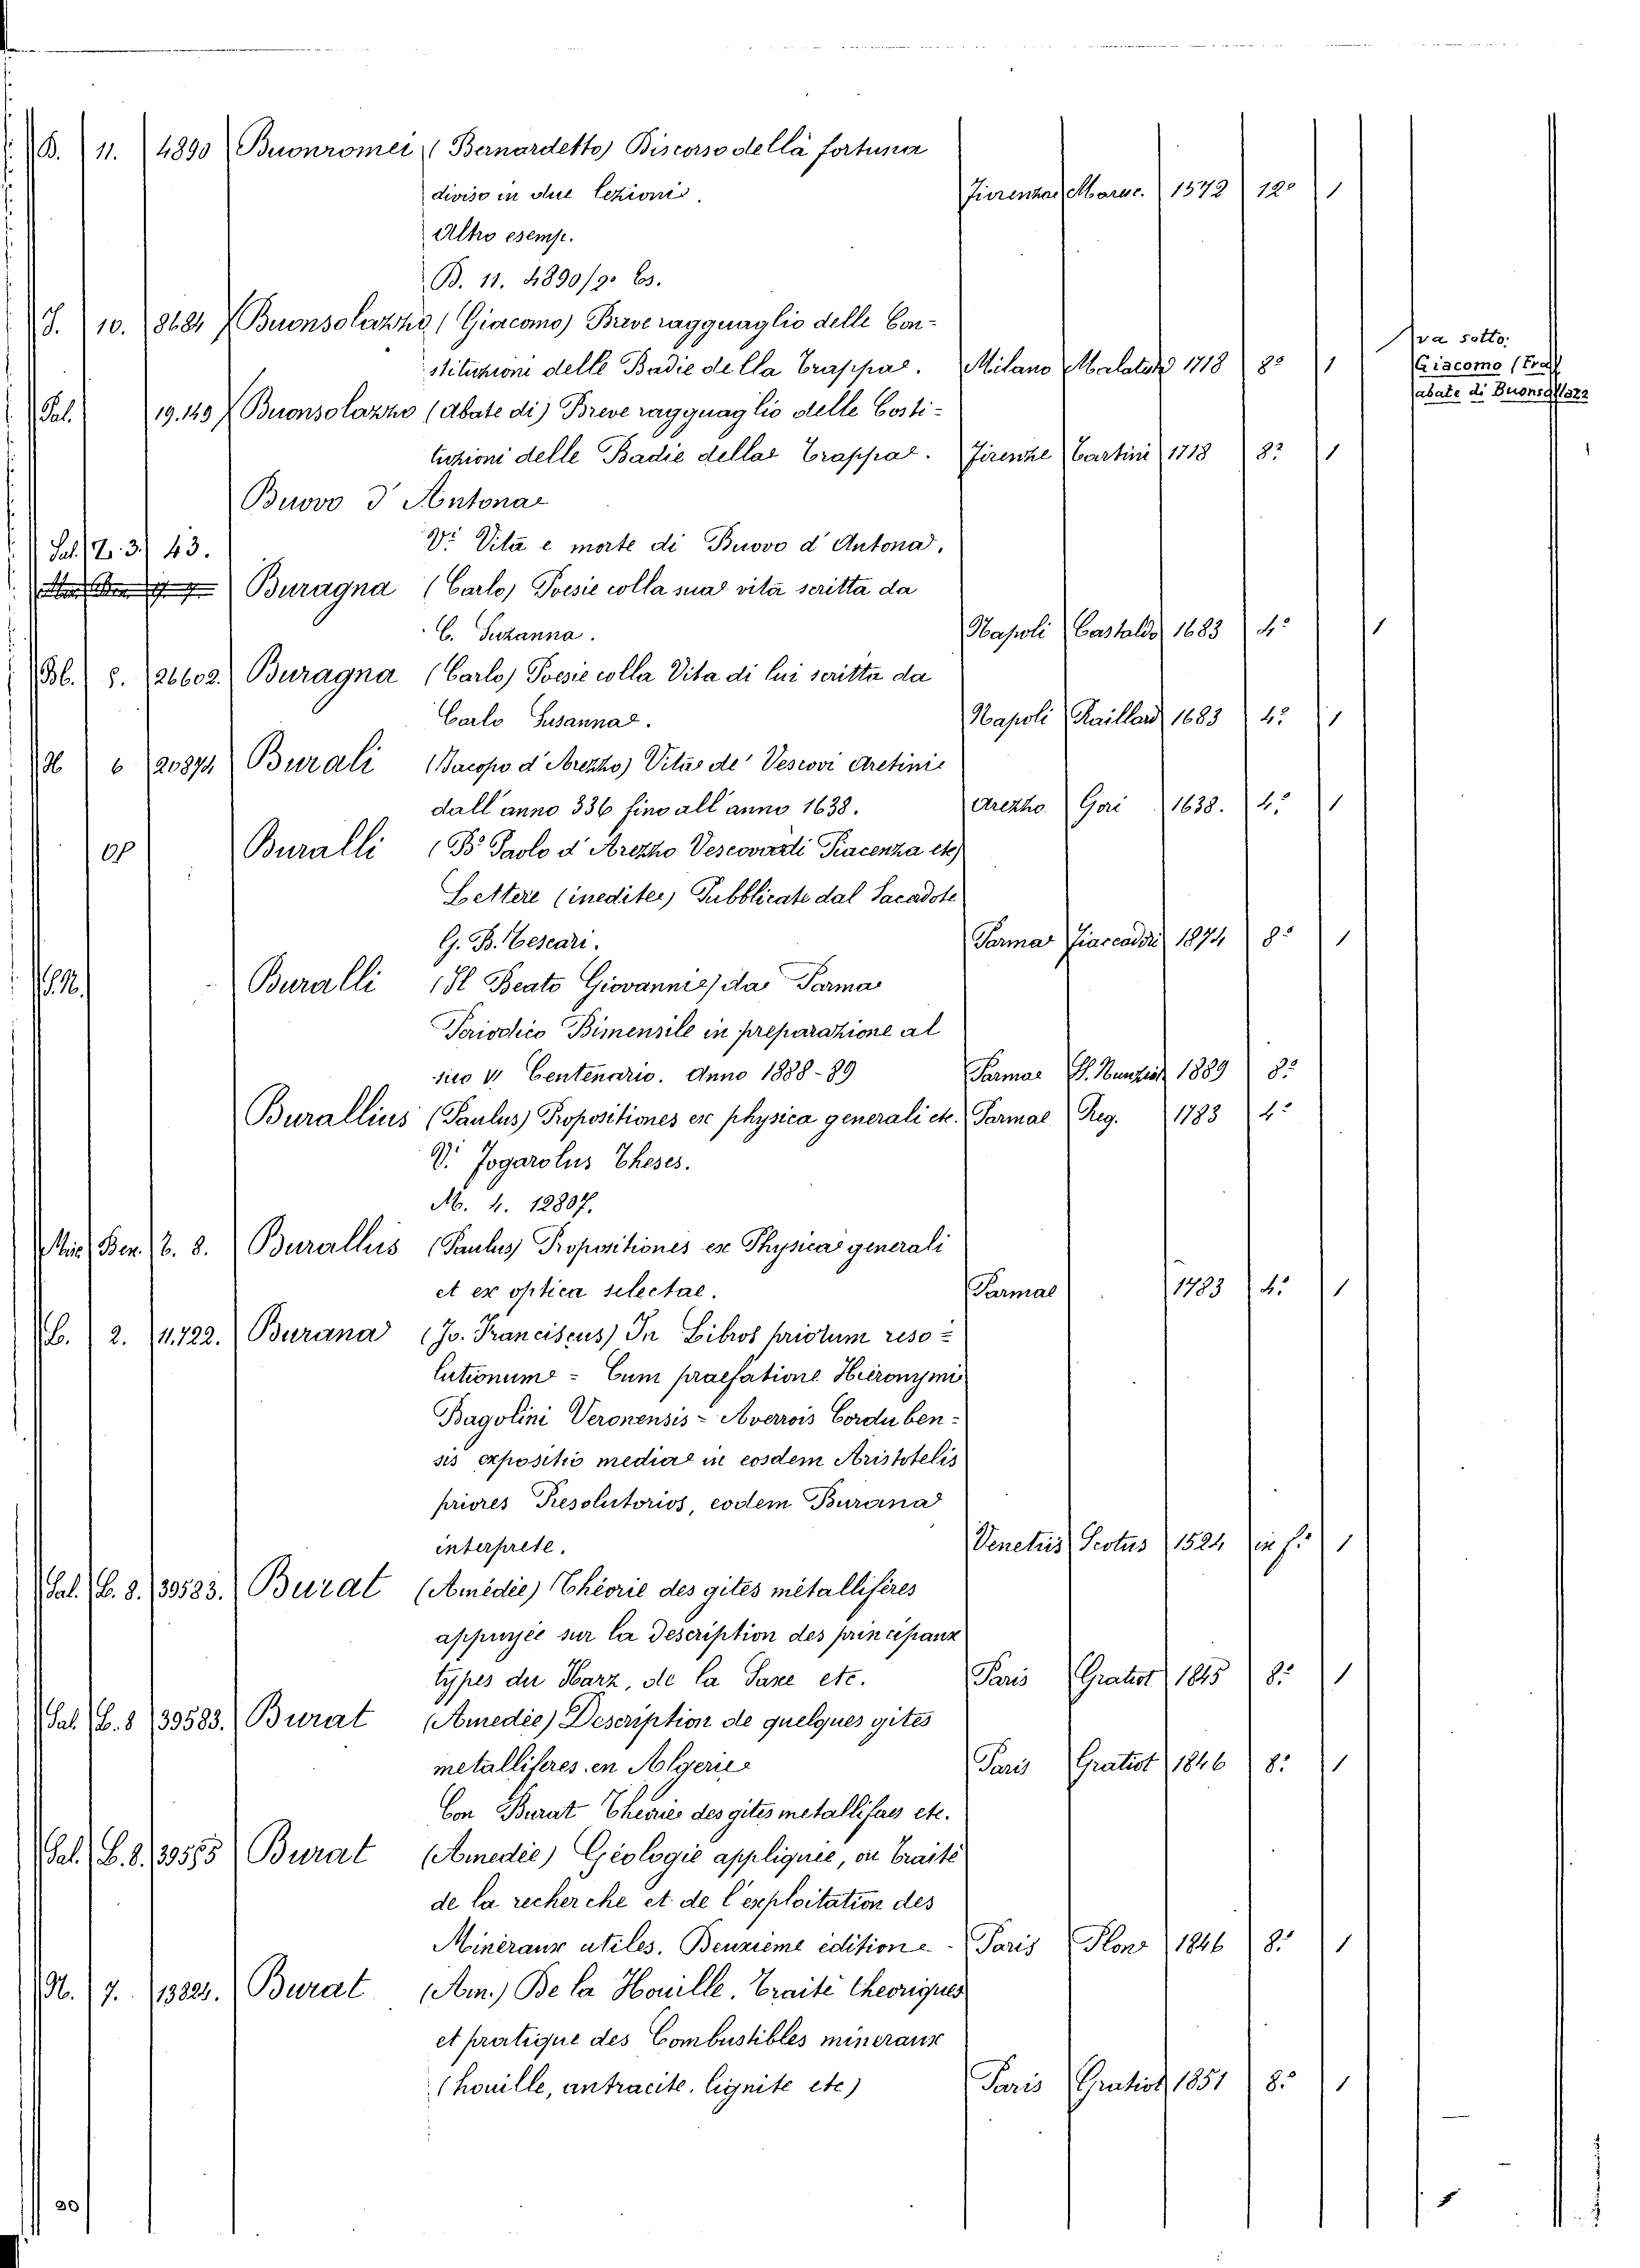 B. 11. 4890 Buonromei (Bernardetto) Discorso della fortuna
diviso in due lezioni. Fiorenza Maresc. 1572 12° 1
Altro esemp.
B. 11. 4890/90 Cs.
J. 10. 8684 Buonsolazzo (Giacomo) Breve ragguaglio delle Con-
stituzioni delle Badie della Trappa. Milano Malatesta 1718 8° 1
va sotto:
Giacomo (Fra)
abate di Buonsollazz
Pal. 19.149 Buonsolazzo (Abate di) Breve ragguaglio delle Costi-
tuzioni delle Badie della Trappa. Firenze Tartini 1718 8° 1
Buovo d'Antona
V. Vita e morte di Buovo d'Antona.
Pal. 3. 43.
Buragna (Carlo) Poesie colla sua vita scritta da
C. Suzanna. Napoli Castaldo 1683 4° 1
Bb. 8. 26602. Buragna (Carlo) Poesie colla Vita di lui scritta da
Carlo Susanna. Napoli Raillard 1683 4° 1
H 6 20874 Burali (Jacopo d'Arezzo) Vita de' Vescovi Aretini
dall'anno 336 fino all'anno 1638. Arezzo. Gori 1638. 4° 1
OP Buralli (B° Paolo d'Arezzo Vescovo di Piacenza etc)
Lettere (inedite) Pubblicate dal Sacerdote
G. B. Tescari. Parma Fiaccadori 1874 8° 1
Buralli (Il Beato Giovanni) da Parma
Periodico Bimensile in preparazione al
suo VI Centenario. Anno 1888-89 Parma S. Nunzio 1889 8°
Burallius (Paulus) Propositiones ex physica generali etc. Parmae Reg. 1783 4°
V. Jogarolus Theses.
M. 4. 12807.
Mis. Ben. C. 8. Burallus (Paulus) Propositiones ex Physica generali
et ex optica selectae. Parmae 1783 4° 1
C. 2. 11.722. Burana (Jo. Franciscus) In Libros priorum reso-
lutionum - Cum praefatione Hieronymi
Bagolini Veronensis - Averrois Corduben-
sis expositio media in eosdem Aristotelis
priores Resolutorios, eodem Burana
interprete. Venetiis Scotus 1524 in f.° 1
Pal. C. 8. 39583. Burat (Amédée) Théorie des gites métallifères
appuyée sur la Description des principaux
types du Harz, de la Saxe etc. Paris Gratiot 1845 8° 1
Pal. C. 8 39583. Burat (Amedée) Description de quelques gites
metalliferes en Algerie Paris Gratiot 1846 8° 1
Con Burat Theorie des gites metallifaes etc.
Pal. C. 8. 39585 Burat (Amedée) Géologie appliquée, ou Traité
de la recherche et de l'exploitation des
Minéraux utiles. Deuxième édition. Paris Plon 1846 8° 1
N. 7. 13824. Burat (Am.) De la Houille. Traité theorique
et pratique des Combustibles mineraux
(houille, antracite, lignite etc) Paris Gratiot 1851 8° 1
20